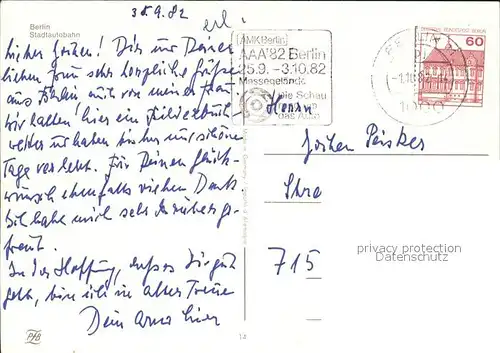 Berlin
Stadtautobahn
9.82
AMK Berlin
AAA'82 Berlin
25.9. - 3.10.82
Messegelände
Die Schau
das Auto
60
1000
Lieber Jochen! Dir und Deiner
lieben Frau sehr herzliche Grüße
aus Berlin auch von meiner Frau.
Wir hatten hier ein
Wetter und haben bisher nur schöne
Tage verlebt. Für Deinen Glück-
wunsch ebenfalls vielen Dank.
Ich habe mich sehr darüber ge-
freut.
In der Hoffnung, daß es Dir gut
geht, bin ich in alter Treue
Dein
Herrn
Jochen
715
privacy protection
Datenschutz